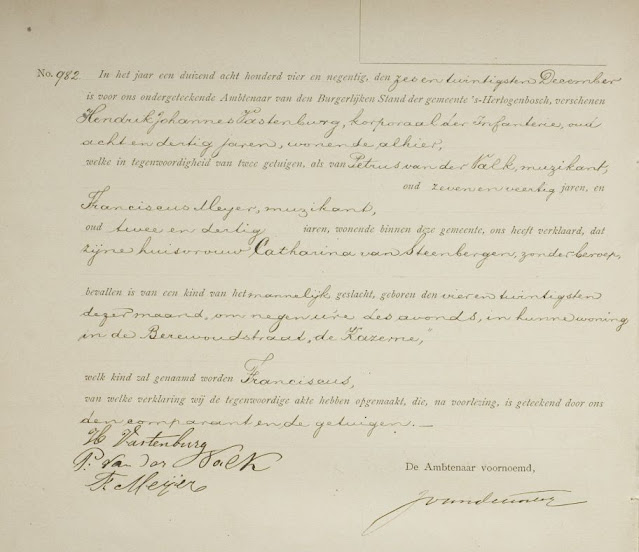 No. 982. In het jaar een duizend acht honderd vier en negentig, den zes en twintigsten December
is voor ons ondergeteekende Ambtenaar van den Burgerlijken Stand der gemeente 's-Hertogenbosch, verschenen
Hendrik Johannes Vastenburg, korporaal der Infanterie, oud
acht en dertig jaren, wonende alhier,
welke in tegenwoordigheid van twee getuigen, als van Petrus van der Valk, muzikant,
oud zeven en veertig jaren, en
Franciscus Meyer, muzikant,
oud twee en dertig jaren, wonende binnen deze gemeente, ons heeft verklaard, dat
zijne huisvrouw, Catharina van Steenbergen, zonder beroep,
bevallen is van een kind van het mannelijk geslacht, geboren den vier en twintigsten
dezer maand, om negen ure des avonds, in hunne woning
in de Berewoudstraat, "de Kazerne,"
welk kind zal genaamd worden Franciscus,
van welke verklaring wij de tegenwoordige akte hebben opgemaakt, die, na voorlezing, is geteekend door ons
den comparant en de getuigen. —
H Vastenburg
P. van der Valk
F. Meijer
De Ambtenaar voornoemd,